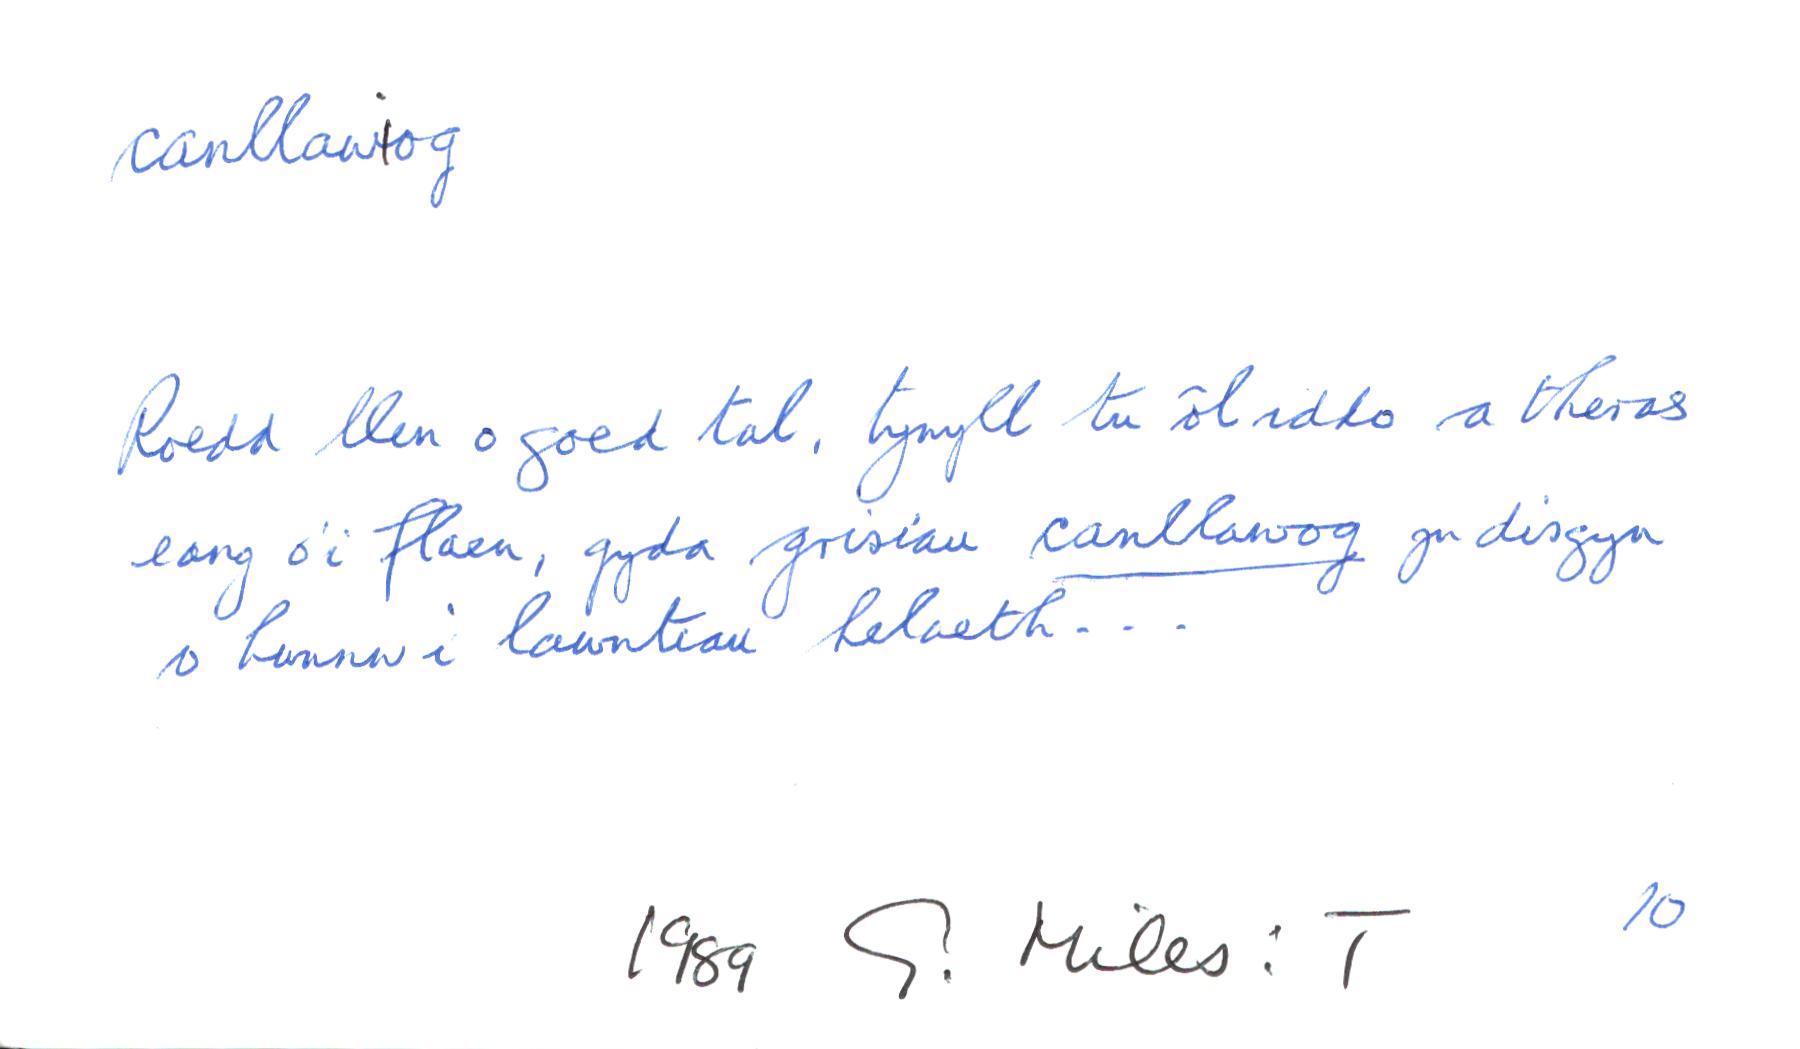 canllawiog
Roedd llen o goed tal, tynyll tu ôl iddo a theras
eang o'i flaen, gyda grisiau canllawog yn disgyn
o hwnnw i lawntiau helaeth...
1989 G. Miles: T 10